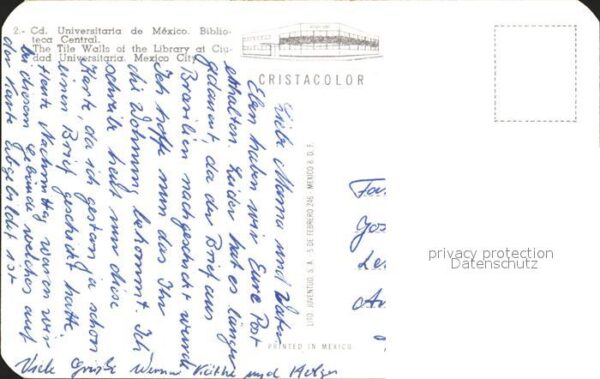 2.- Cd. Universitaria de México. Biblio-
teca Central.
The Tile Walls of the Library at Ciu-
dad Universitaria. Mexico City
CRISTACOLOR
LITO. JUVENTUD, S. A. - 5 DE FEBRERO 246 - MEXICO 8, D. F.
PRINTED IN MEXICO.
Liebe Mama und Vater
Eben haben wir Eure Post
erhalten. Leider hat es länger
gedauert, da der Brief aus
Brasilien nachgeschickt wurde
Ich hoffe nun das Ihr
die Wohnung bekommt. Ich
schreibe heute nur diese
Karte, da ich gestern ja schon
einen Brief geschickt hatte.
Heute Nachmittag waren wir
bei diesem Gebäude welches auf
der Karte abgebildet ist
Viele Grüße Werner Käthe und Holger
privacy protection
Datenschutz